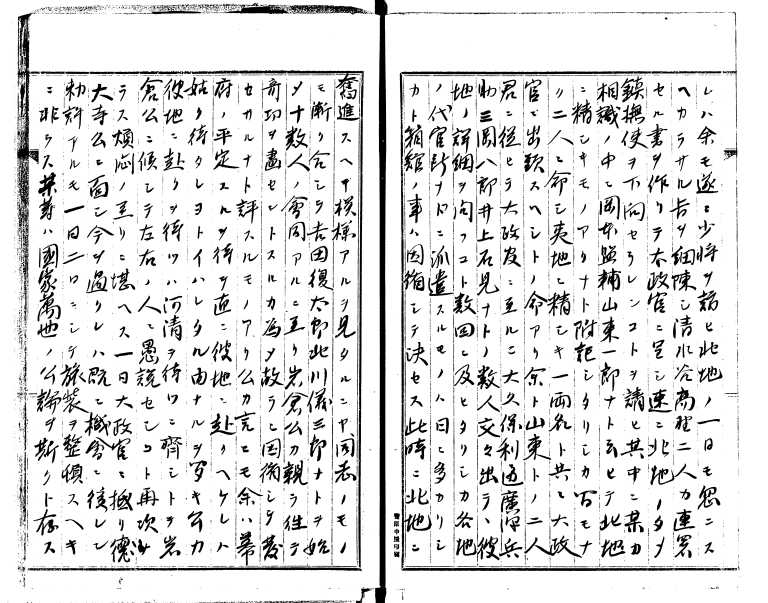 レハ余モ遂ニ少将ヲ訪ヒ此地ノ一日モ忽ニス
ヘカラサル旨ヲ細陳シ清水谷高野二人カ連署
セル書ヲ作リテ太政官ニ呈シ速ニ北地ノタメ
鎮撫使ヲ下向セラレンコトヲ請ヒ其中ニ某カ
相識ノ中ニ岡本監輔山東一郎ナト云ヒテ北地
ニ精シキモノアリナト附記シタリシカ百モナ
リ二人ニ命シ夷地ニ精シキ一両名ト共ニ大政
官ニ出頭スヘシトノ命アリ余ト山東トノ二人
君ニ従ヒテ大政友ニ至ルニ大久保利通廣澤兵
助三岡八郎井上石見ナトノ数人交々出テヽ彼
地ノ詳細ヲ問フコト数回ニ及ヒタリシカ各地
ノ代官所ナトニ派遣スルモノハ日ニ多カリシ
カト箱館ノ事ハ因循シテ決セス此時ニ北地ニ
奮進スヘキ模様アルヲ見タルニヤ同志ノモノ
モ漸ク合シテ吉田復太郎北川儀三郎ナトヲ始
メ十数人ノ會同アルニ至リ岩倉公カ親ラ往テ
奇功ヲ畫セントスルカ為メ故ラニ因循シテ發
セカルナト評スルモノアリ公カ言ニモ余ハ幕
府ノ平定スルヲ待ヲ直ニ彼地ニ赴クヘケレト
姑ク待タレヨトイハレタル由ナルヲ聞キ公カ
彼地ニ赴クヲ待ツハ河清ヲ待ツニ齊シトヲ岩
倉公ニ候シテ左右ノ人ニ愚説セシコト再次
ラス煩悶ノ至リニ堪ヘス一日大政官ニ抵リ徳
大寺公ニ面シ今ヲ過クレハ既ニ機會ニ後レン
勅許アルモ一日二ロニシテ旅装ヲ整頓スヘキ
ニ非ラス某等ハ國家萬世ノ公論ヲ斯クト存ス